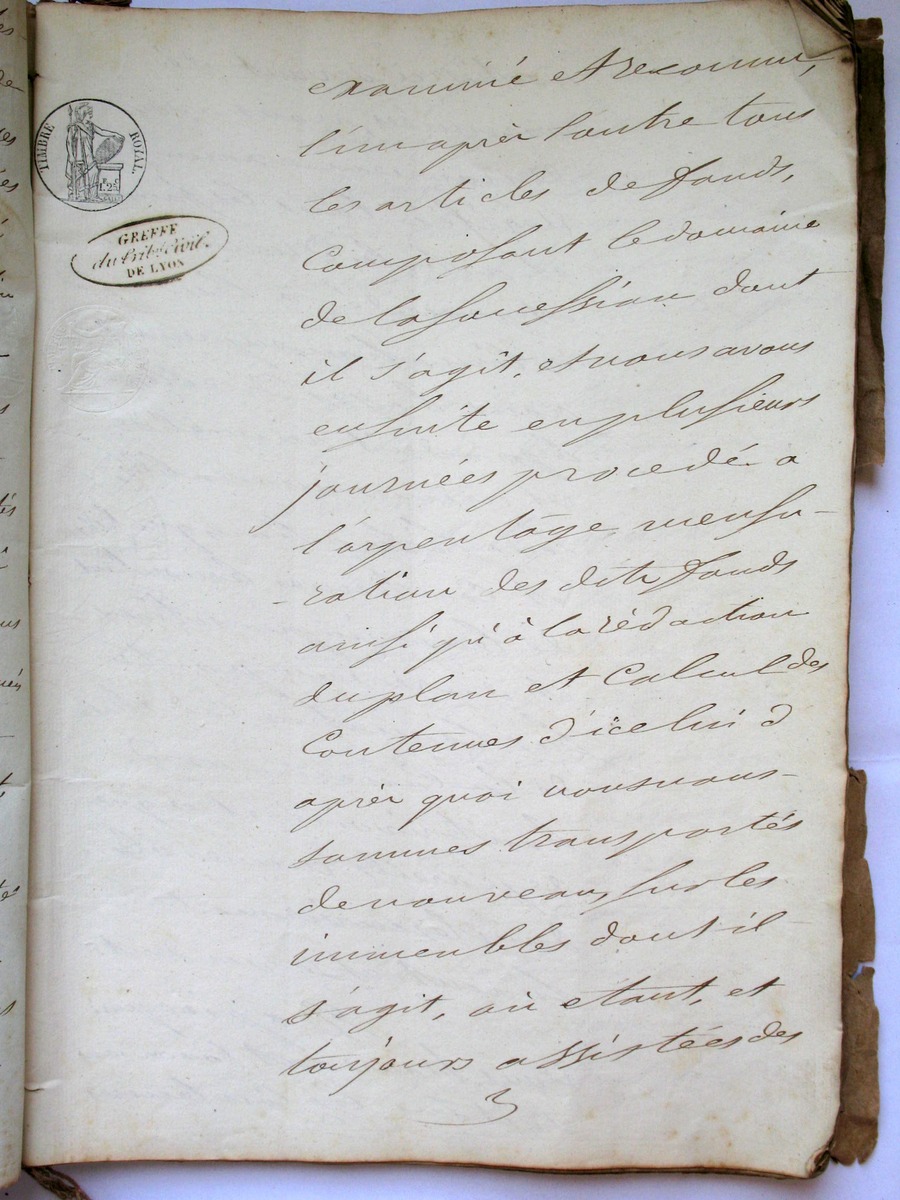 TIMBRE ROYAL.
1.25
GREFFE
du trib.al civil.
DE LYON
examiné et reconnu,
l'un après l'autre tous
les articles de fonds,
Composant le domaine
de la succession dont
il s'agit, et nous avons
ensuite en plusieurs
journées procedé a
l'arpentage mensu-
-ration des dits fonds
ainsi qu'à la rédaction
du plan et Calcul des
Contenues d'icelui d
après quoi nous nous
sommes transportés
de nouveau, sur les
immeubles dont il
s'agit, où etant, et
toujours assistées des
3